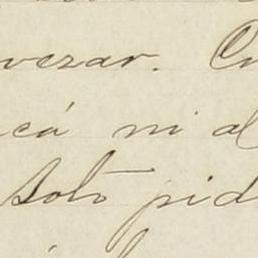 vezar. Cu
cá ni al
Solo pid